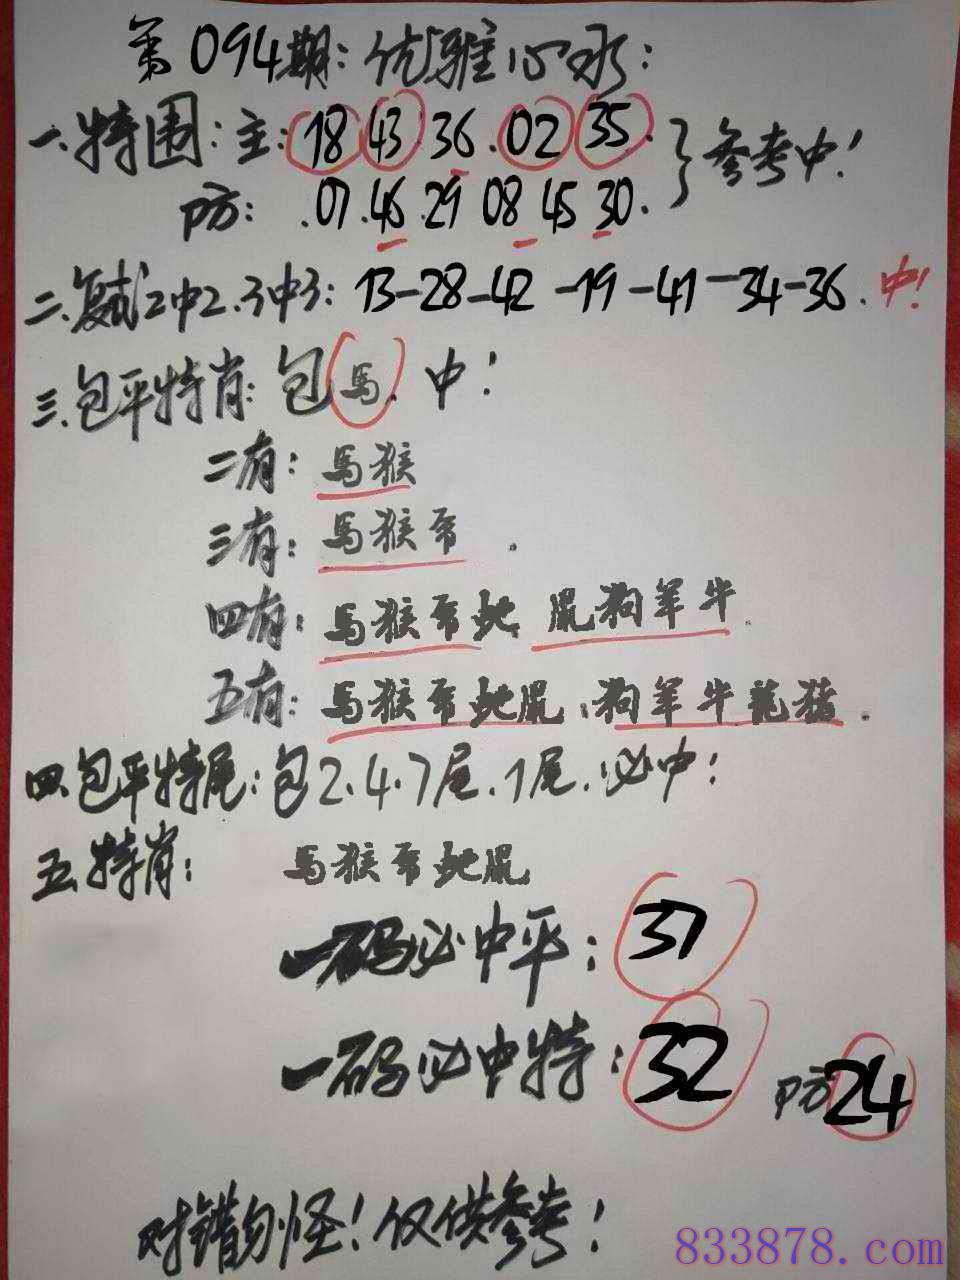 第094期:优雅心水:
一.特围:主:18 43 36.02 35.
参考中!
防:.07.46.29 08 45 30.
二.复式2中2.3中3:13-28-42-19-41-34-36.中!
三.包平特肖:包馬.中!
二有:馬猴
三有:馬猴帝.
四有:馬猴帝虵 鼠狗羊牛.
五有:馬猴帝虵鼠.狗羊牛龍猪.
四.包平特尾:包2.4.7尾.1尾.必中!
五.特肖:馬猴帝虵鼠
一码必中平:37
一码必中特:32 防24
对错勿怪!仅供参考!
833878.com